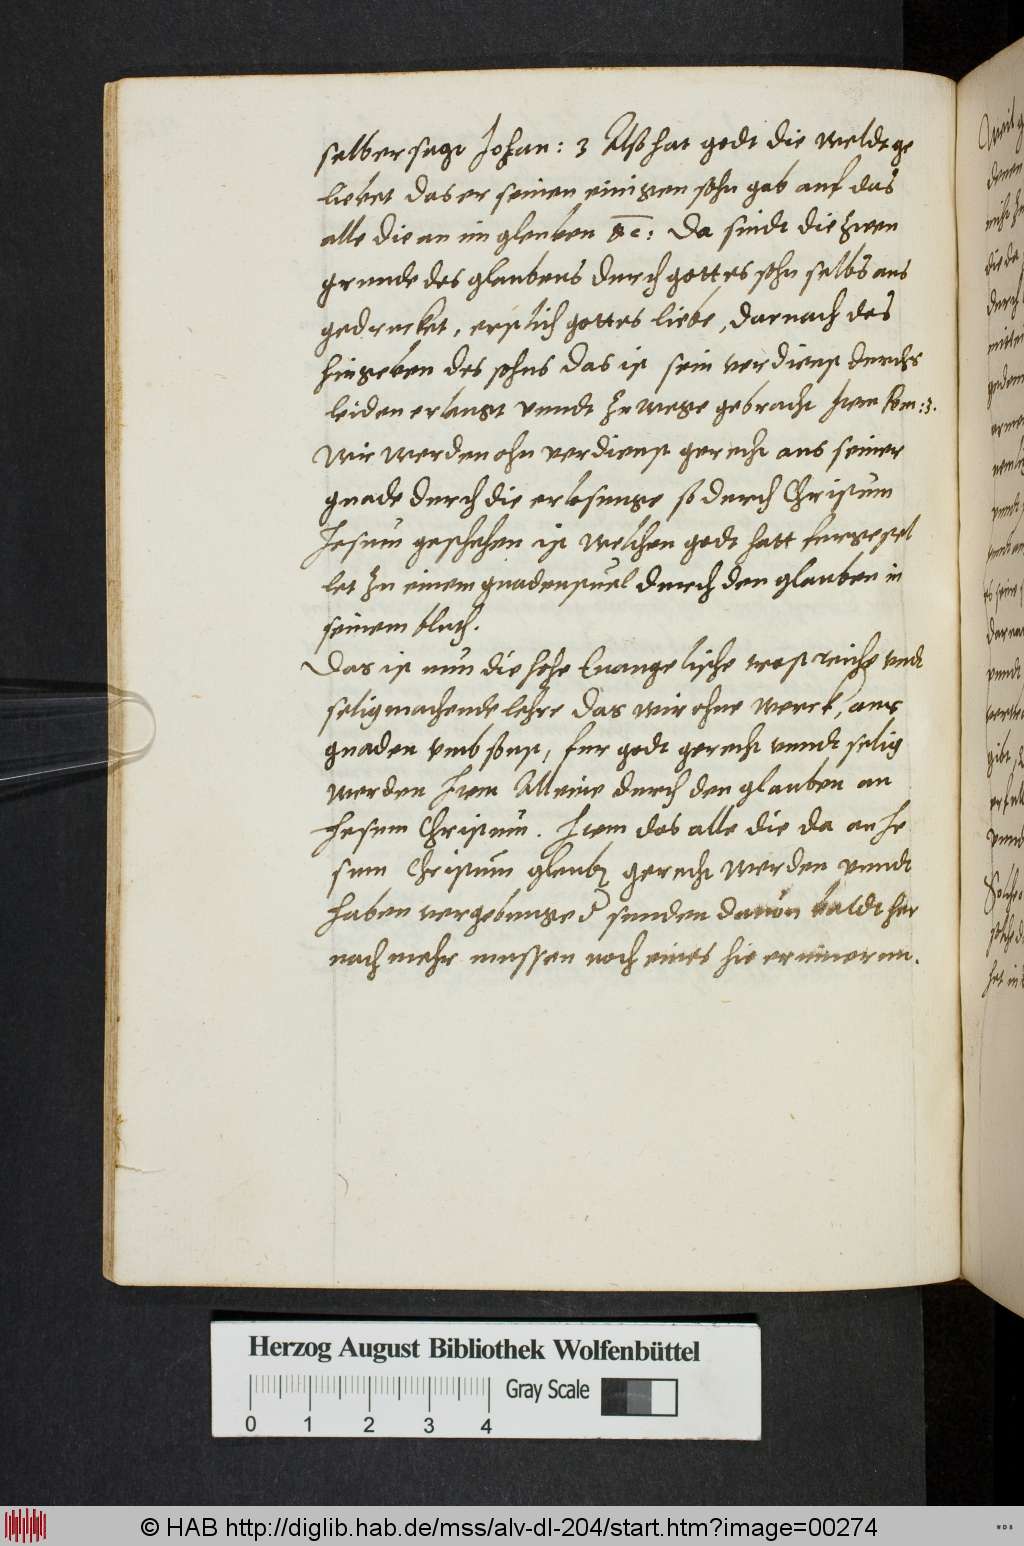 selber sagt Johan: 3 Alßo hat godt die weldt ge
liebet das er seinen einigen sohn gab auf das
alle die an im gleuben &c: Da sindt die zwen
grunde des glaubens durch gottes sohn selbs aus
gedrucket, erstlich gottes liebe, darnach des
hingeben des sohns das ist sein verdienst durchs
leiden erlangt vnndt zu wege gebracht Item Rom: 3.
Wir werden ohn verdienst gerecht aus seiner
gnade durch die erlosunge so durch Christum
Jesum geschehen ist welchen godt hatt furgestel
let zu einem gnadenstuel durch den glauben in
seinem bluth.
Das ist nun die hohe Euangelische trostreiche vndt
seligmachende lehre das wir ohne werck, aus
gnaden vmb sonst, fur godt gerecht vnndt selig
werden Item Alleine durch den glauben an
Jhesum Christum. Item das alle die da an Je
sum Christum gleuben gerecht werden vnndt
haben vergebunge der sunden dauon baldt her
nach mehr mussen noch eines hie erinnern.
Herzog August Bibliothek Wolfenbüttel
Gray Scale
0 1 2 3 4
© HAB http://diglib.hab.de/mss/alv-dl-204/start.htm?image=00274